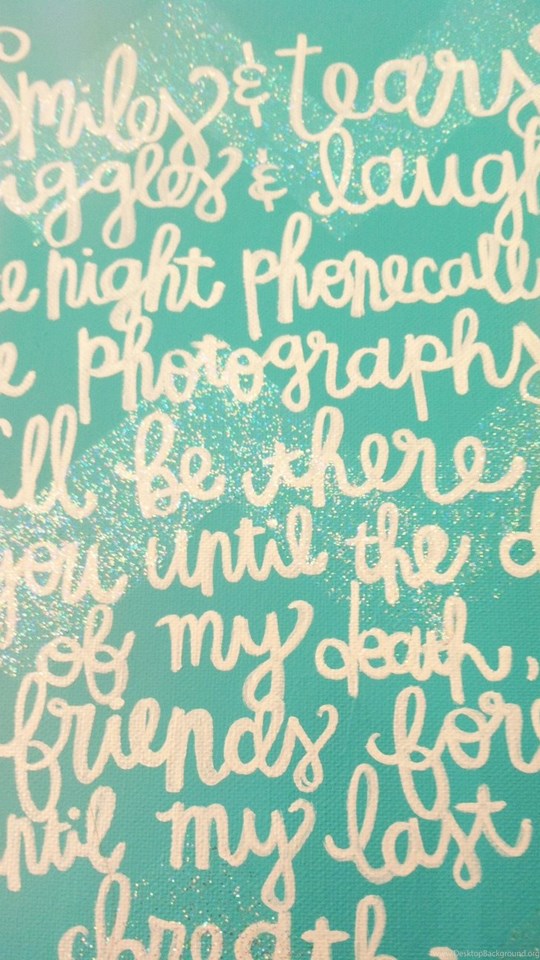 Smiles & tears
iggles & laugh
e night phonecalls
e photographs
'll be there
you until the d
of my death,
friends fore
ntil my last
breath -
DesktopBackground.org